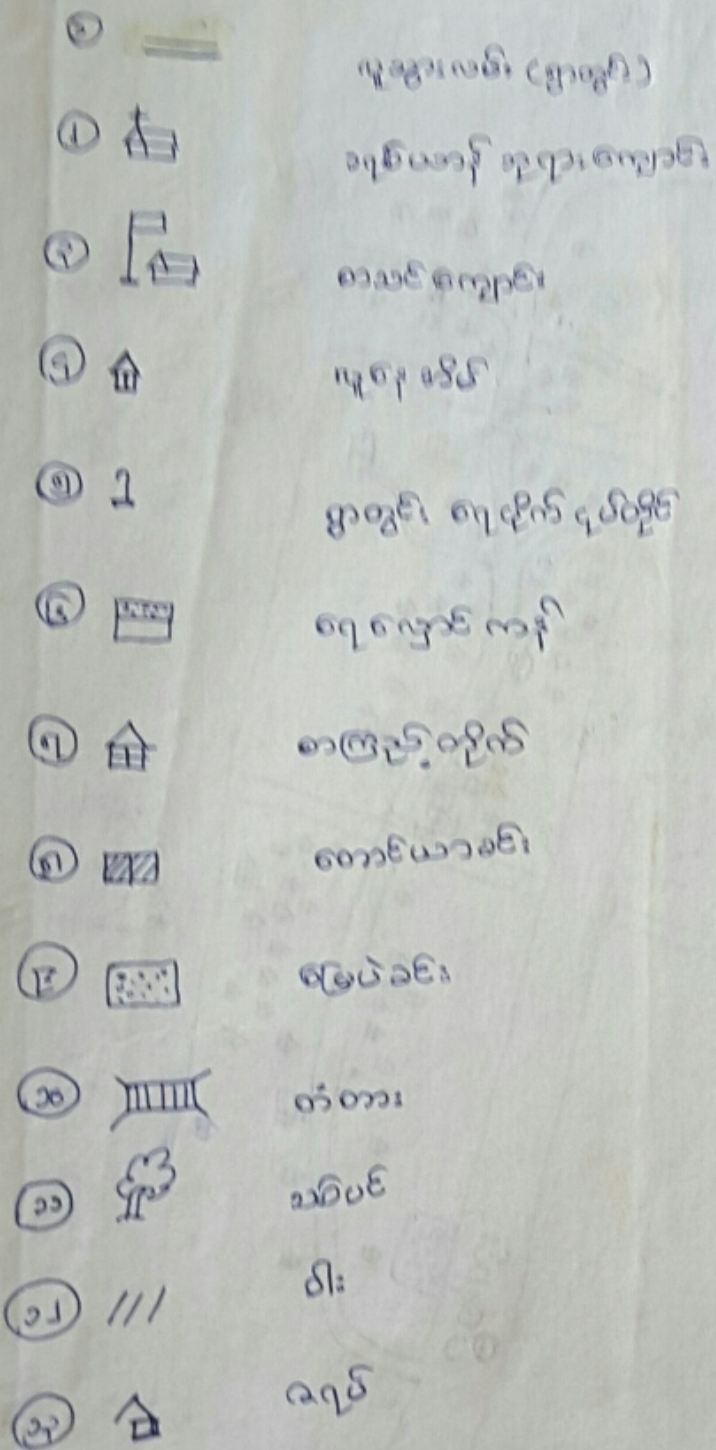 ၁ လူသွားလမ်း (ရွာတွင်း)
၂ ခရစ်ယာန် ဘုရားကျောင်း
၃ စာသင်ကျောင်း
၄ လူနေ အိမ်
၅ ရွာတွင်း ရေပိုက် ငုပ်တိုင်
၆ ရေလှောင် ကန်
၇ စာကြည့်တိုက်
၈ တောင်ယာခင်း
၉ မြေပဲခင်း
၁၀ တံတား
၁၁ သစ်ပင်
၁၂ ဝါး
၁၃ ဇရပ်